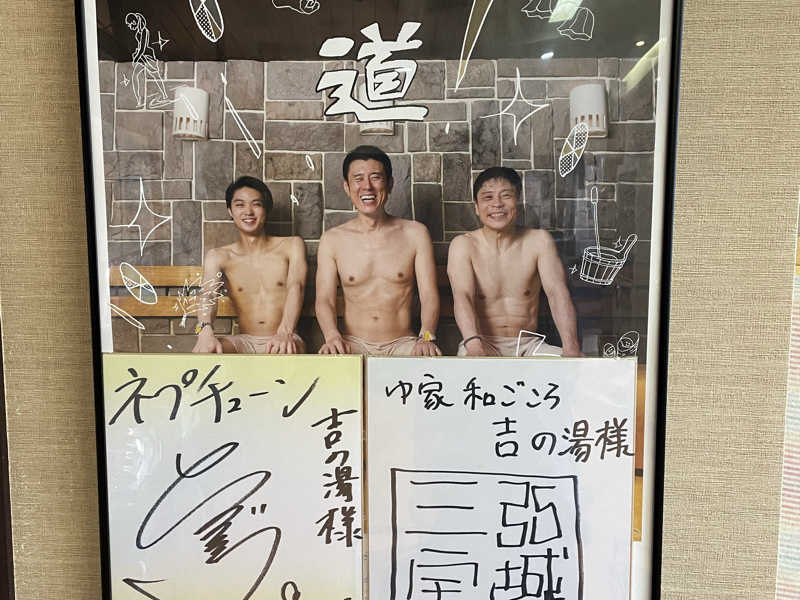 道
ネプチューン
吉の湯様
ゆ家 和ごころ
吉の湯様
三宅
弦城